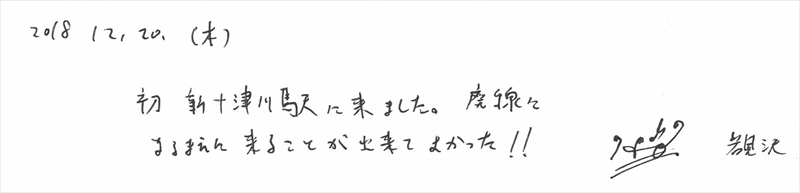 2018 12, 20. (木)
初 新十津川駅に来ました。廃線に
なるまえに 来ることが出来てよかった!!